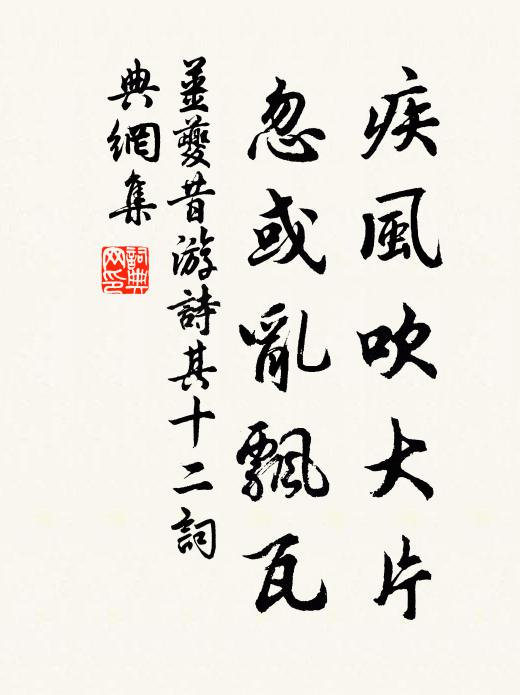 疾風吹大片
忽或亂飄瓦
姜夔昔游詩其十二詞
典網集
詞典
网印